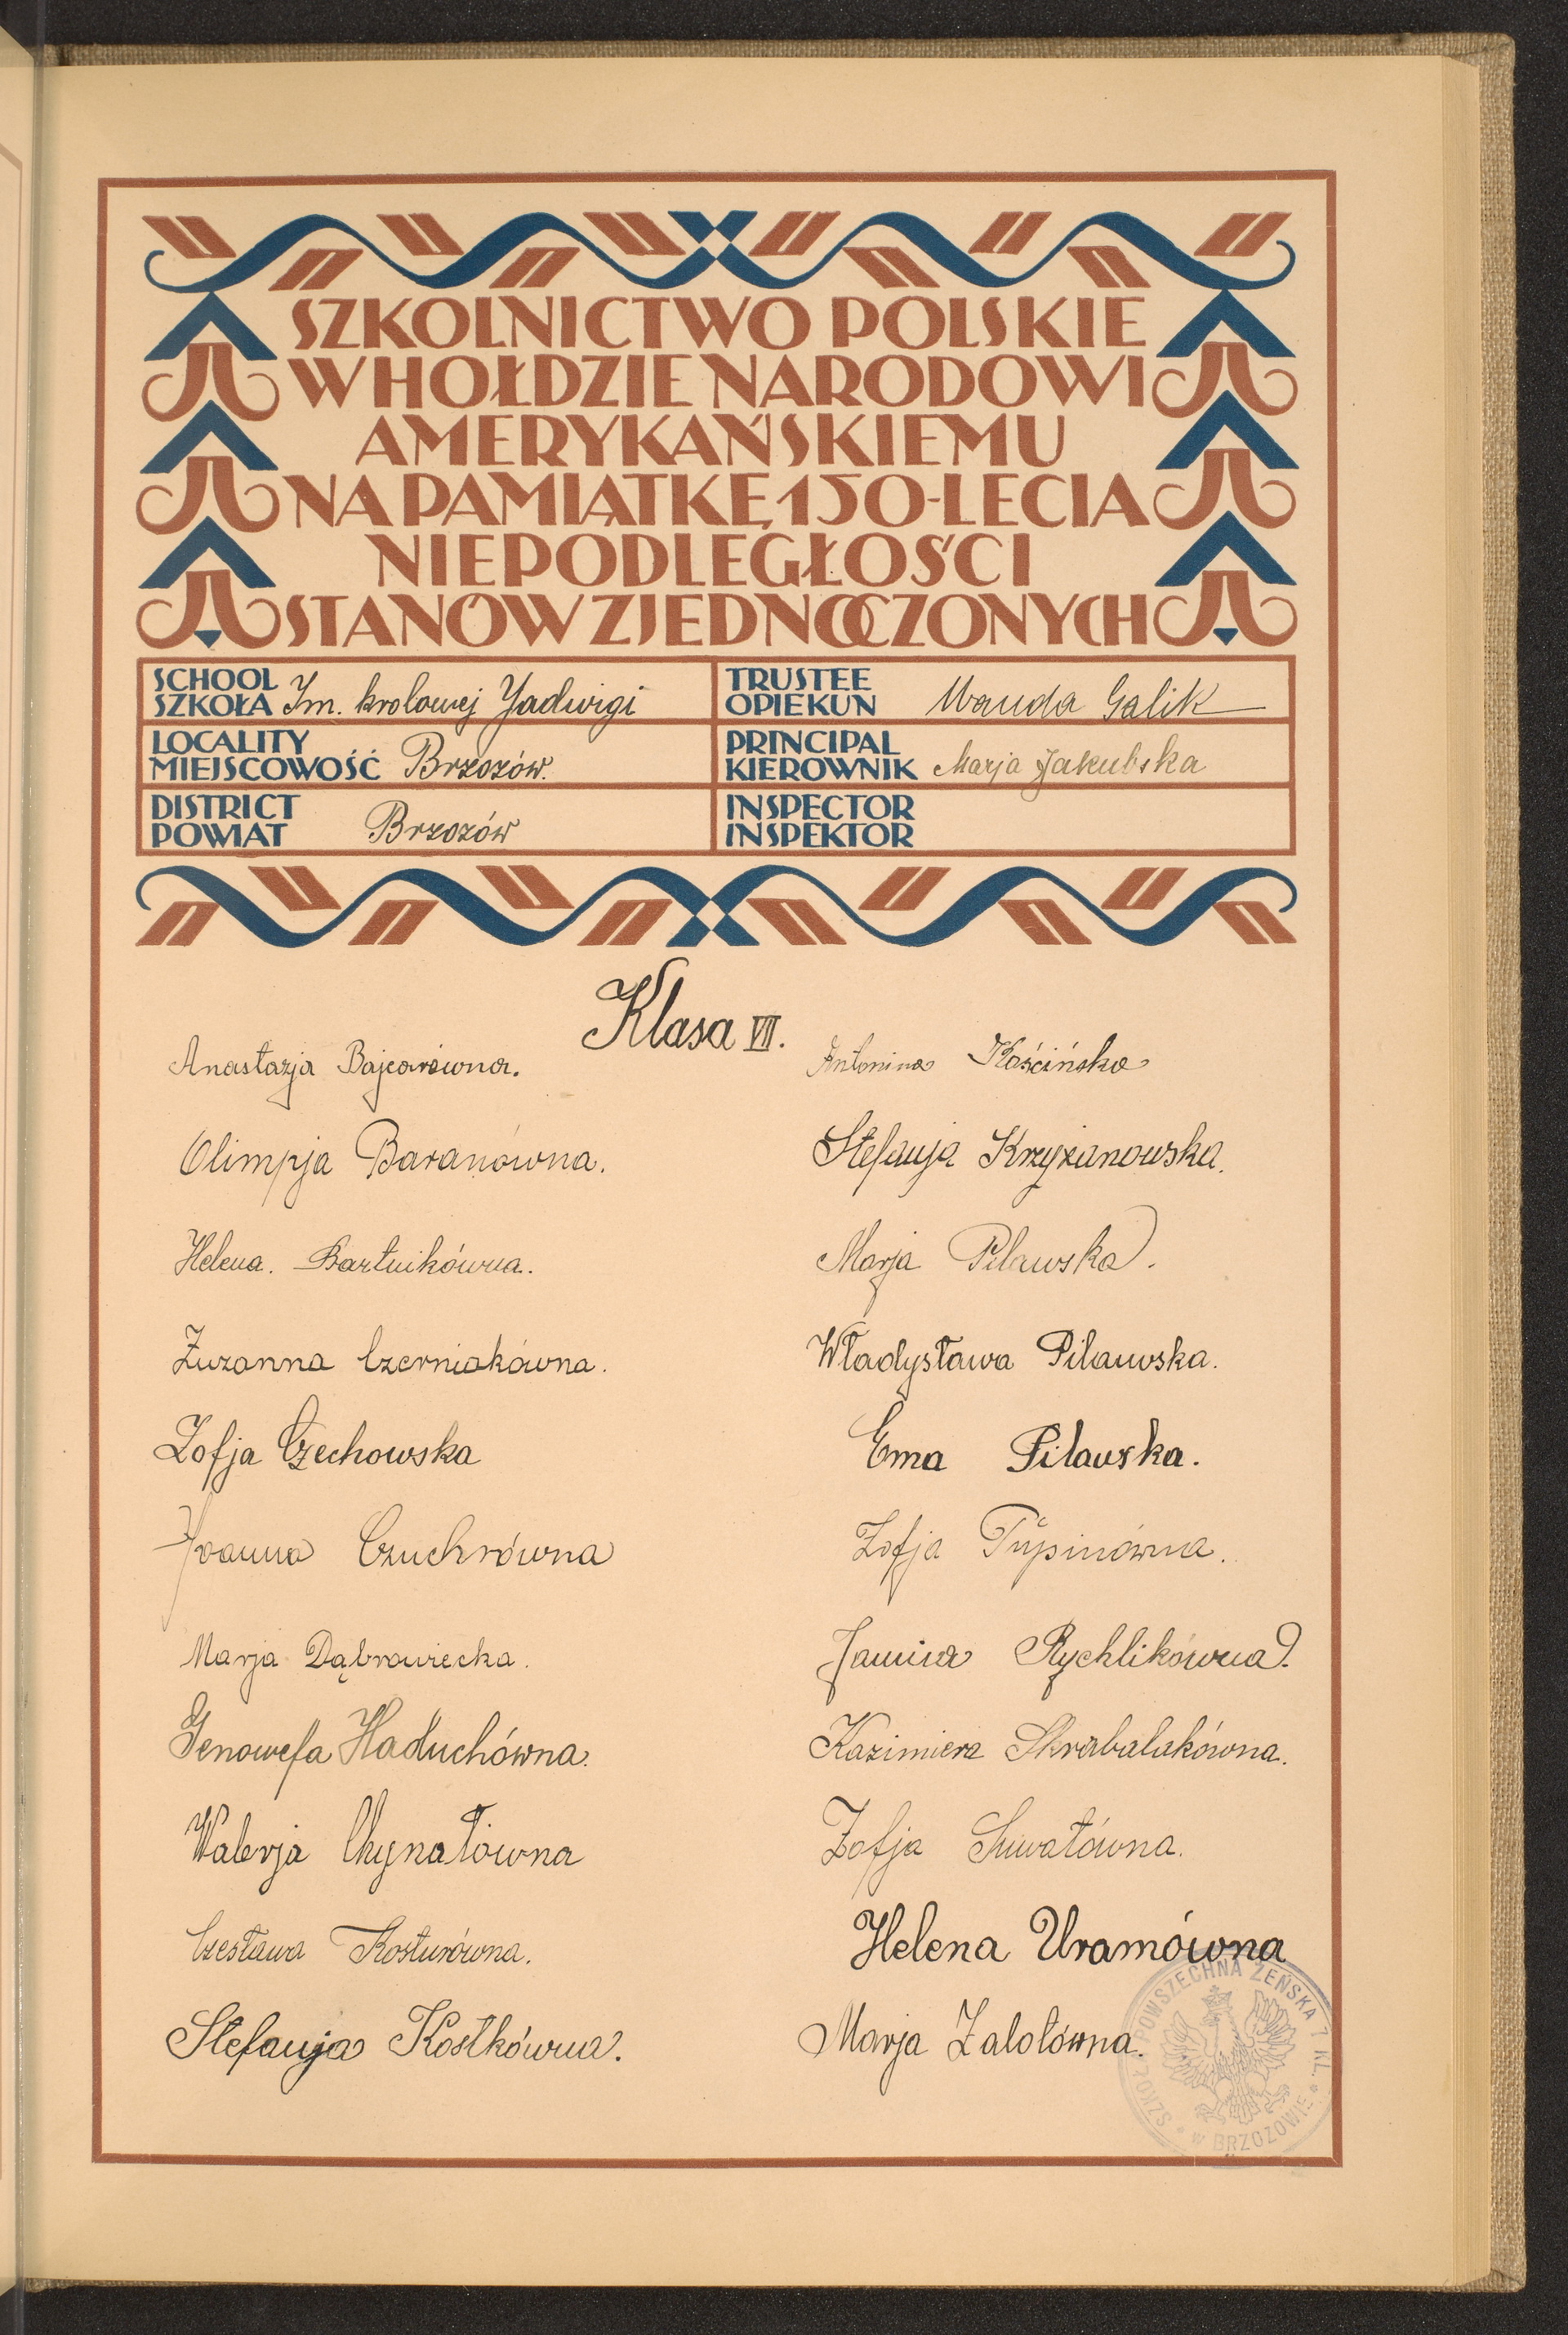 SZKOLNICTWO POLSKIE
W HOŁDZIE NARODOWI
AMERYKAŃSKIEMU
NA PAMIĄTKĘ 150-LECIA
NIEPODLEGŁOŚCI
STANÓW ZJEDNOCZONYCH
SCHOOL
SZKOŁA Im. krolowej Jadwigi
TRUSTEE
OPIEKUN Wanda Galik
LOCALITY
MIEJSCOWOŚĆ Brzozów.
PRINCIPAL
KIEROWNIK Marja Jakubska
DISTRICT
POWIAT Brzozów
INSPECTOR
INSPEKTOR
Klasa VII.
Anastazja Bajcarówna.
Olimpja Baranówna.
Helena. Bartnikówna.
Zuzanna Czerniakówna.
Zofja Czechowska
Joanna Czuchrówna
Marja Dąbrowiecka.
Genowefa Haduchówna.
Walerja Chynatówna
Czesława Kosturówna.
Stefanja Kostkówna.
Antonina Kościńska
Stefanja Krzyżanowska.
Marja Pilawska.
Władysława Pilawska.
Ema Pilawska.
Zofja Pŭpinówna.
Janina Rychlikówna.
Kazimiera Skrabalakówna.
Zofja Suwatówna.
Helena Uramówna
Marja Zalotówna.
SZKOŁA POWSZECHNA ŻEŃSKA 7 KL.
* w BRZOZOWIE *